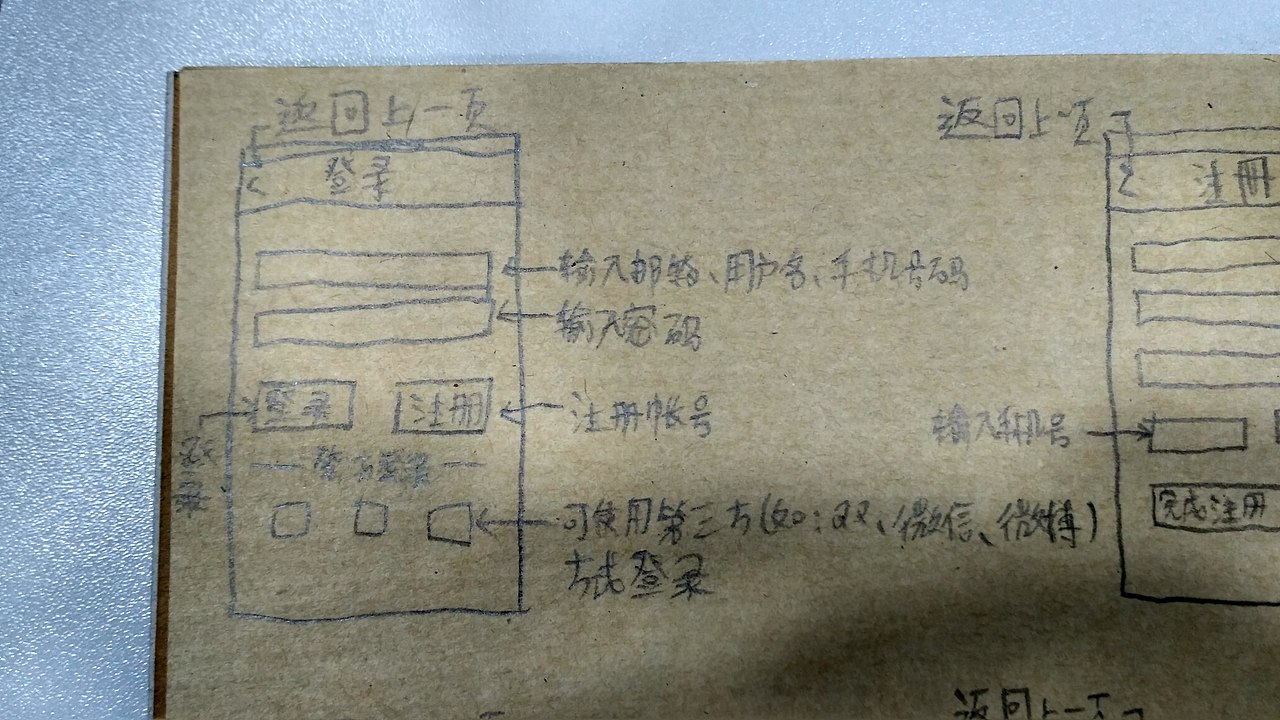 返回上一页
登录
输入邮箱、用户名、手机号码
输入密码
登录
注册
注册帐号
登录
可使用第三方(如:QQ、微信、微博)
方式登录
返回上一页
注册
输入手机号
完成注册
返回上一页